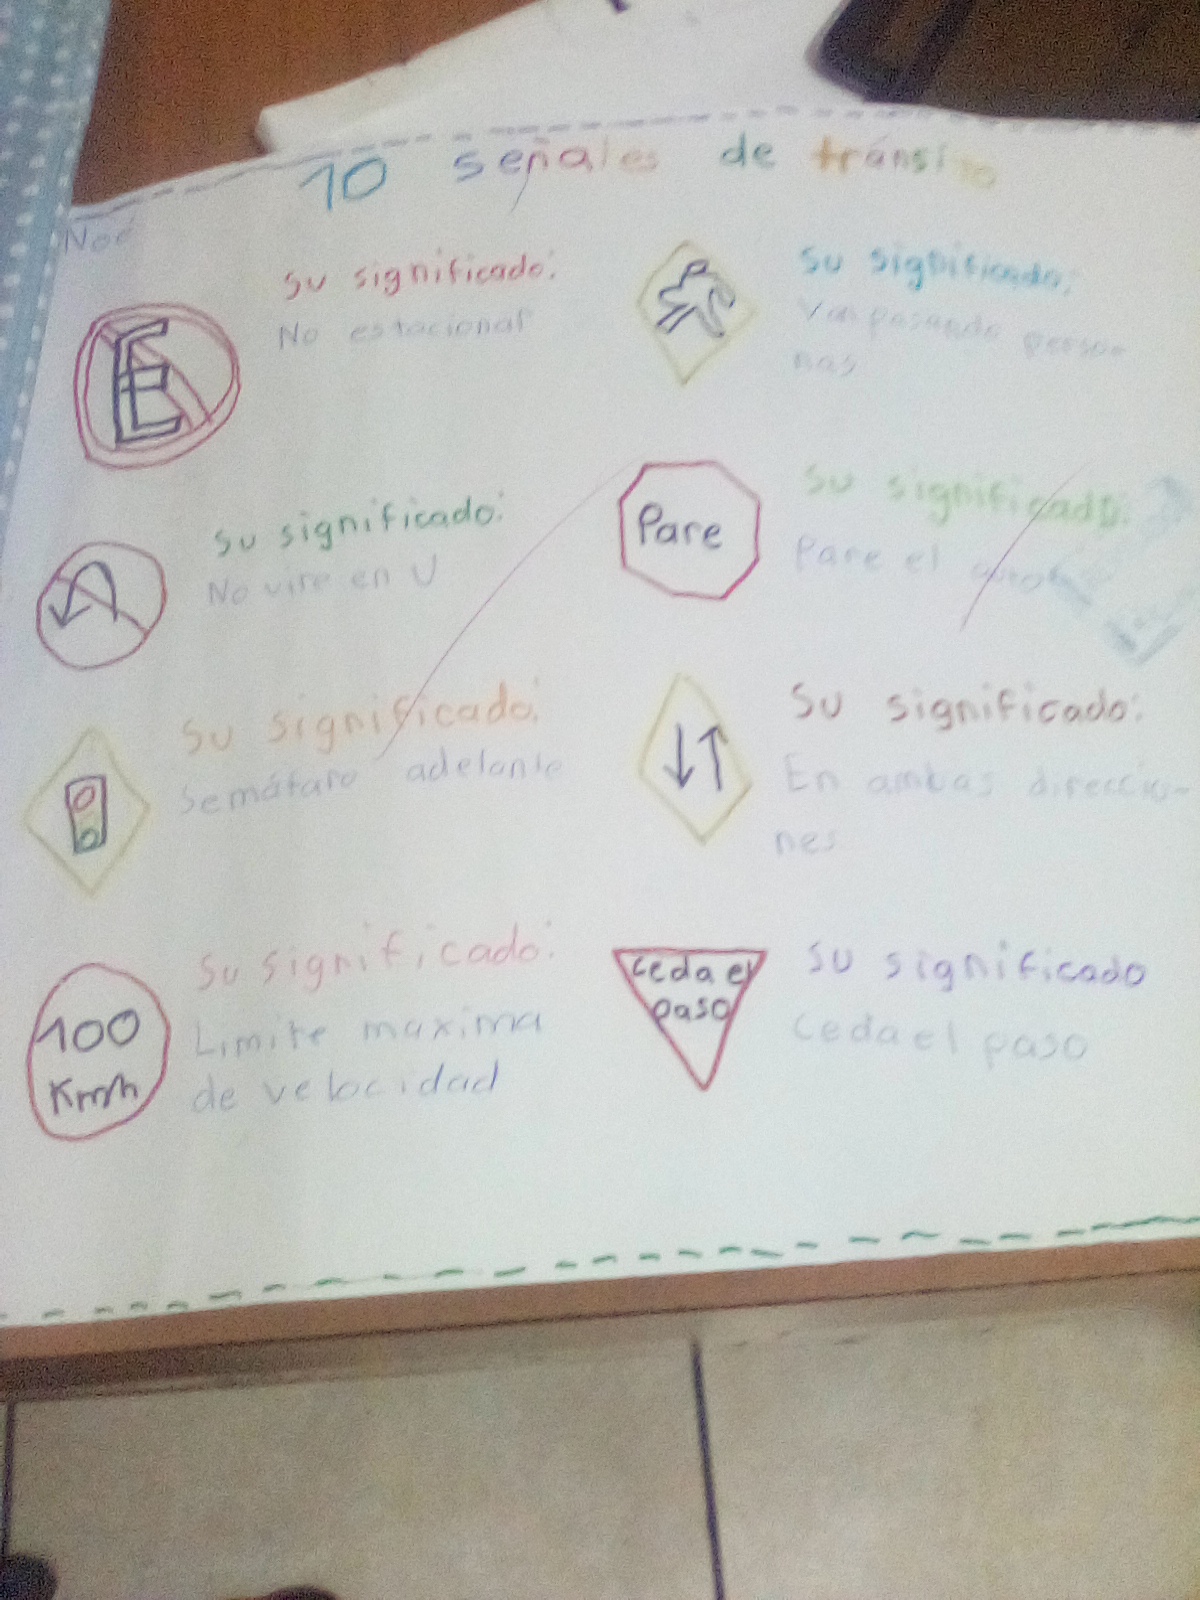 10 señales de tránsito
Noé
Su significado:
No estacionar
E
Su significado:
Van pasando perso-
nas
Su significado:
No vire en U
Pare
Su significado:
Pare el
Su significado:
Semáfaro adelante
Su significado:
En ambas direccio-
nes
100
Km/h
Su significado:
Limite maxima
de velocidad
Ceda el
paso
Su significado
Ceda el paso